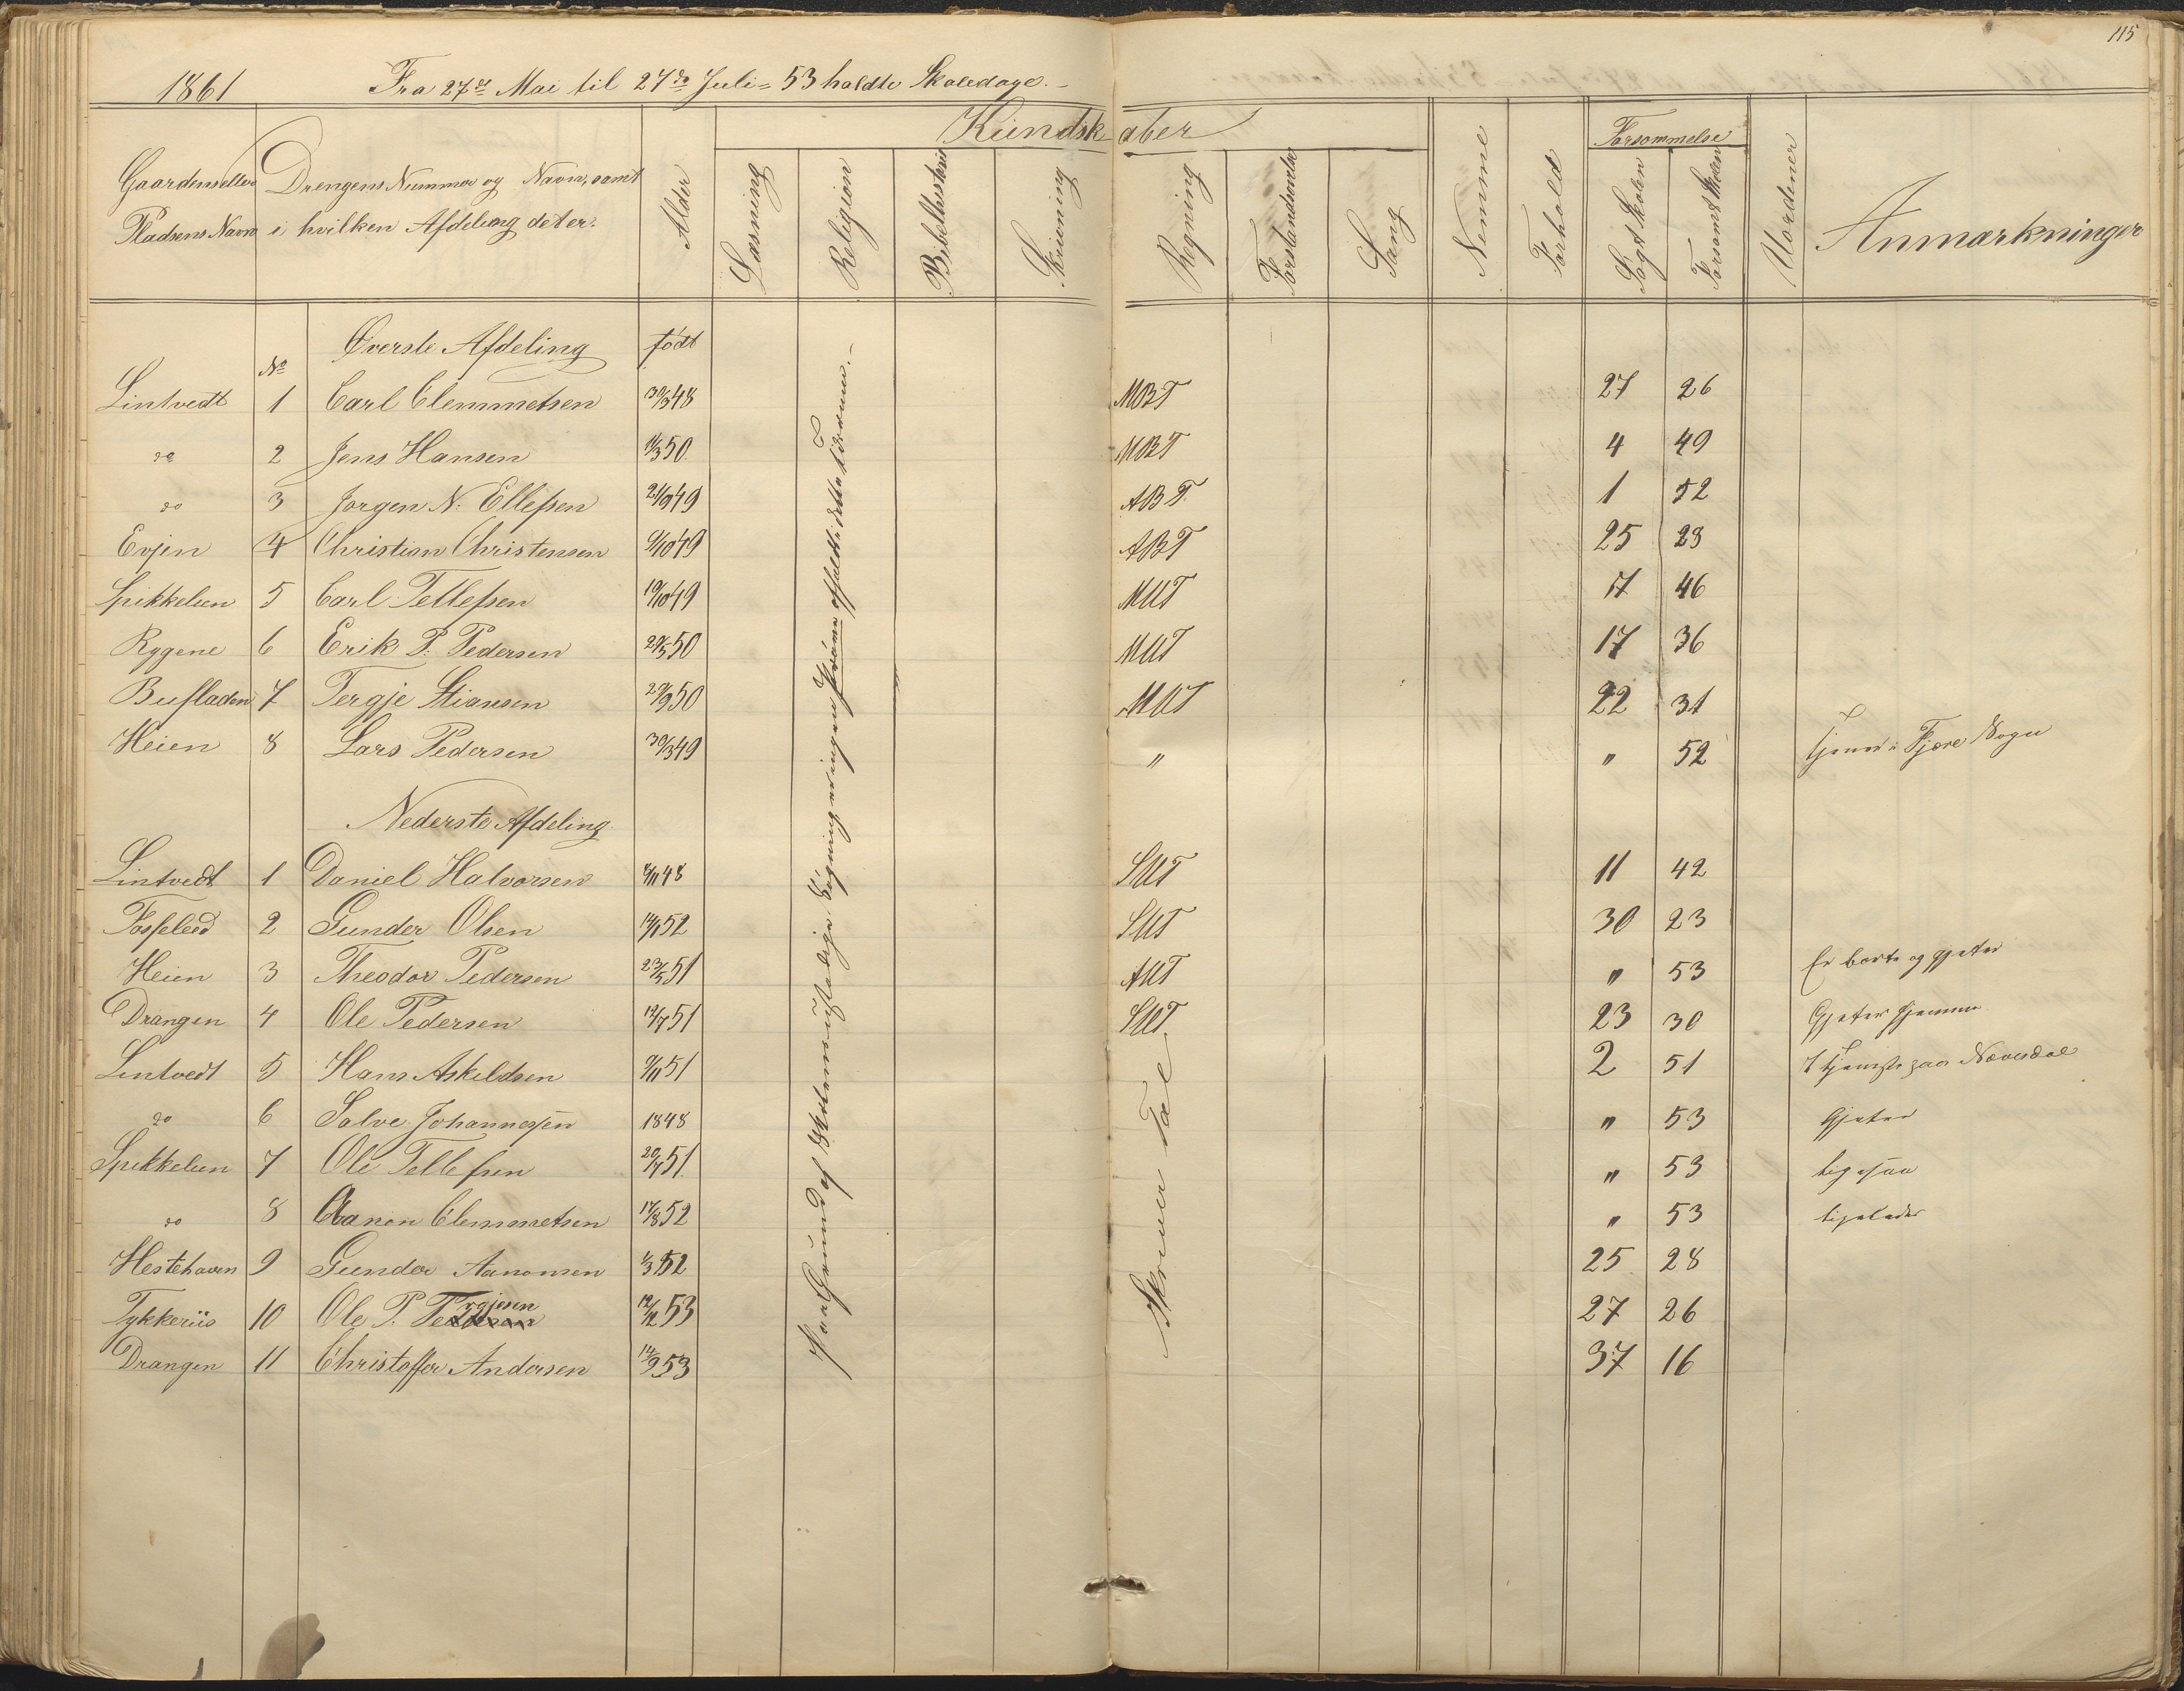 115
1861 Fra 27de Mai til 27de Juli = 53 holdte Skoledage. -
Kundskaber
Forsømmelse
Gaardens eller Drengens Nummer og Navn, samt
Pladsens Navn i hvilken Afdeling det er.
Alder
Læsning
Religion
Bibelhistorie
Skrivning
Regning
Forstandsøvelse
Sang
Nemme
Forhold
Søgt Skolen
Forsømt Skolen
Uordener
Anmærkninger
Øverste Afdeling født
No
Lintvedt 1 Carl Clemmetsen 30/3 48 MBT 27 26
do 2 Jens Hansen 11/3 50 MBT 4 49
do 3 Jørgen N: Ellefsen 21/9 49 ABT 1 52
Evjen 4 Christian Christensen 9/10 49 ABT 25 28
Spikkelien 5 Carl Tellefsen 19/10 49 MUT 17 46
Rygene 6 Erik P. Pedersen 29/5 50 MUT 17 36
Bufladen 7 Tergje Stiansen 29/9 50 MUT 22 31
Heien 8 Lars Pedersen 30/3 49 " " 52 tjener i Fjære Sogn
Nederste Afdeling
Lintvedt 1 Daniel Halvorsen 8/11 48 SUT 11 42
Fosseled 2 Gunder Olsen 14/1 52 SUT 30 23
Heien 3 Theodor Pedersen 23/5 51 AUT " 53 Er borte og gjeter
Drangen 4 Ole Pedersen 19/7 51 SUT 23 30 Gjeter hjemme
Lintvedt 5 Hans Askildsen 9/11 51 2 51 I tjeneste paa Nævesdal
do 6 Salve Johannessen 1848 " 53 Gjeter
Spikkelien 7 Ole Tellefsen 20/7 51 " 53 ligesaa
do 8 Aanon Clemmetsen 17/8 52 " 53 ligeledes
Hestehaven 9 Gunder Aanonsen 1/3 52 25 28
Tykkeriis 10 Ole P. Tergjesen 12/12 53 27 26
Drangen 11 Christoffer Andersen 14/9 53 37 16
Paa Grund af Skolens ustadige Søgning er ingen Prøve afholdt i dette Tidsrum. -
Skriver Tal